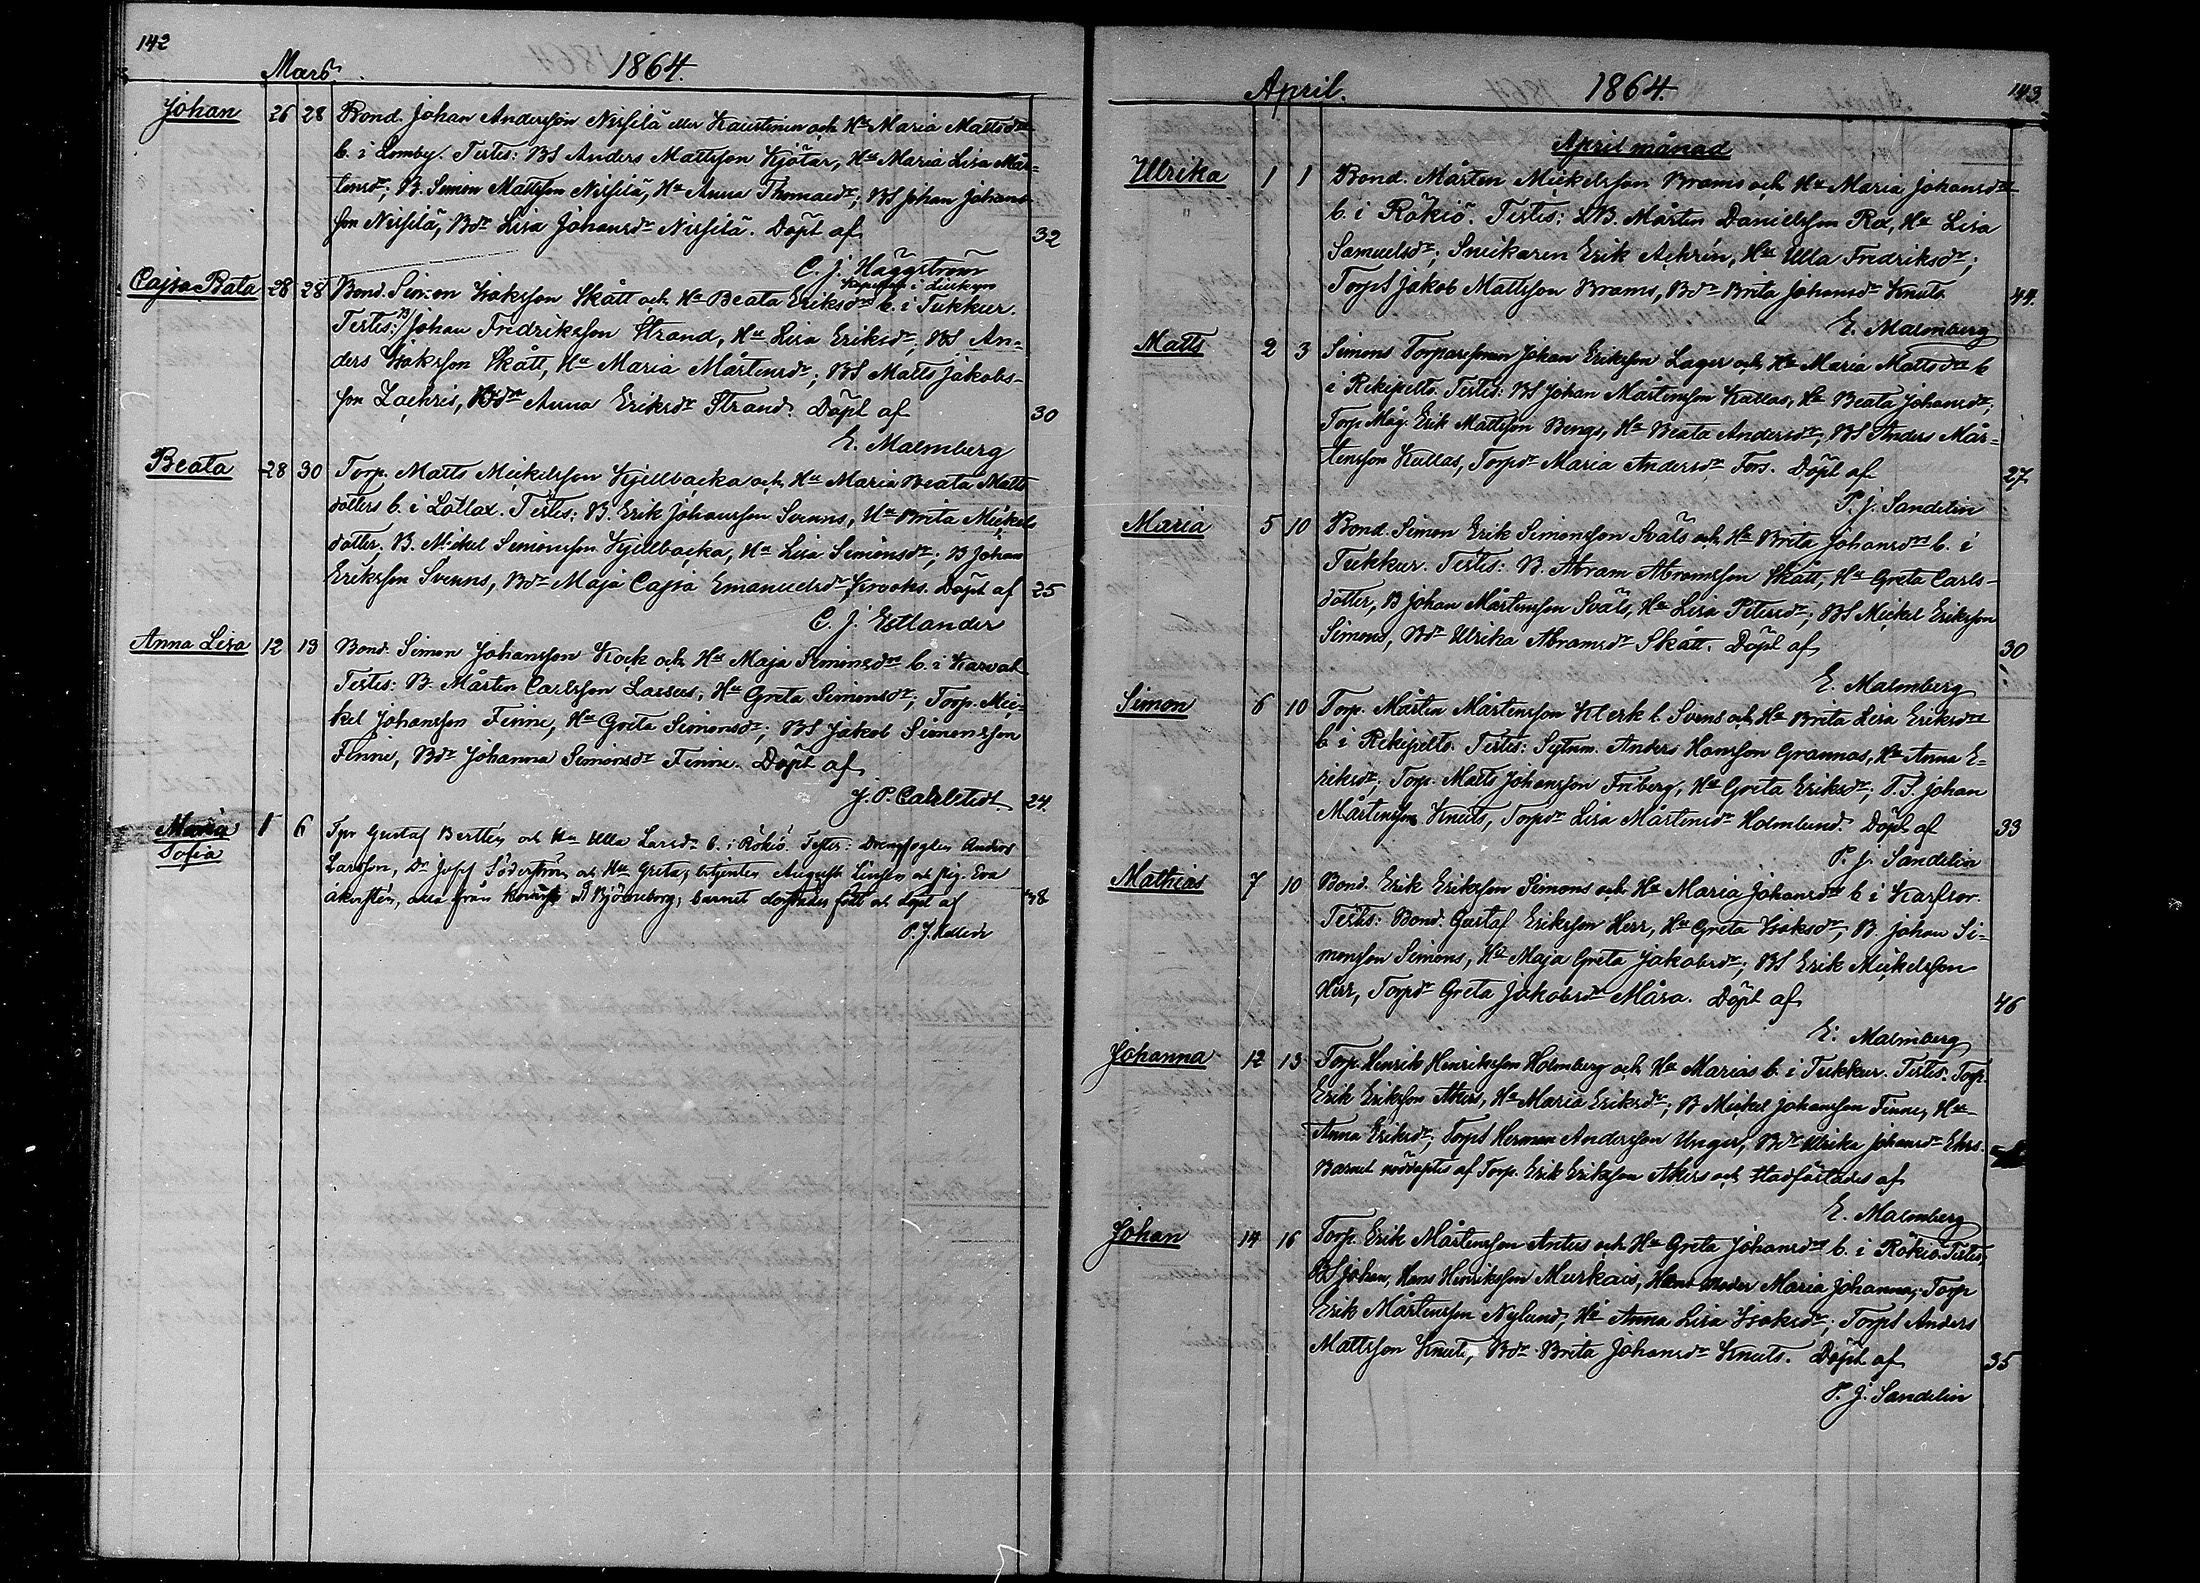 142
Mars. 1864.
Johan 26 28 Bond. Johan Andersson Nissilä eller Kaustinen och Hu Maria Mattsdtr
b. i Lomby. Testes: BS Anders Mattsson Kjötar, Hu Maria Lisa Mår-
tensdr; B. Simon Mattsson Nissilä, Hu Anna Thomasdr; BS Johan Johans-
son Nissilä, Bdr Lisa Johansdr Nissilä. Döpt af 32
C. J. Häggström
Kapellan i
Cajsa Bata 28 28 Bond. Simon Isaksson Skått och Hu Beata Eriksdr b. i Tukkur.
Testes: B/ Johan Fredriksson Strand, Hu Lisa Eriksdr; BS An-
ders Isaksson Skått, Hu Maria Mårtensdr; BS Matts Jakobs-
son Zachris, Bdr Anna Eriksdr Strand. Döpt af 30
E. Malmberg
Beata 28 30 Torp. Matts Mickelsson Kjellbacka och Hu Maria Beata Matts
dotters b. i Lotlax. Testes: B. Erik Johansson Svenns, Hu Brita Mickels
dotter. B. Mickel Simonsson Kjellbacka, Hu Lisa Simonsdr; B Johan
Eriksson Svenns, Bdr Maja Cajsa Emanuelsdr Krooks. Döpt af 25
C. J. Estlander
Anna Lisa 12 13 Bond. Simon Johansson Kock och Hu Maja Simonsdtr b. i Karvat
Testes: B. Mårten Carlsson Lassus, Hu Greta Simonsdr; Torp. Mic-
kel Johansson Finne, Hu Greta Simonsdr; BS Jakob Simonsson
Finne, Bdr Johanna Simonsdr Finne. Döpt af
J. P. Carlstedt 24.
Maria 1 6 Gustaf och Hu Ulla Larsdr b. i Rökiö. Testes: Anders
Sofia
Larsson, Dr Josef Söderström och Hu Greta, betjenten August och pig. Eva
alla från Björneborg, barnet derstädes född och döpt af 48
143.
April. 1864.
April månad
Ulrika 1 1 Bond. Mårten Mickelsson Brams och Hu Maria Johansdtr
b. i Rökiö. Testes: LB. Mårten Danielsson Rex, Hu Lisa
Samuelsdr; Snickaren Erik Achrén, Hu Ulla Fredriksdr;
TorpS Jakob Mattsson Brams, Bdr Brita Johansdr Knuts 44.
E. Malmberg
Matts 2 3 Simons Torparesonen Johan Eriksson Lager och Hu Maria Mattsdtr b
i Rekipelto. Testes: BS Johan Mårtensson Kallas, Hu Beata Johansdr;
Torp Måg. Erik Mattsson Bengs, Hu Beata Andersdr; BS Anders Mår-
tensson Kullas, Torpdr Maria Andersdr Fors. Döpt af 27
P. J. Sandelin
Maria 5 10 Bond. Simon Erik Simonsson Sväls och Hu Brita Johansdtr b. i
Tukkur. Testes: B. Abram Abramsson Skått, Hu Greta Carls-
dotter, B Johan Mårtensson Sväls, Hu Lisa Petersdr; BS Mickel Eriksson
Simons, Bdr Ulrika Abramsdr Skått. Döpt af 30
E. Malmberg
Simon 6 10 Torp. Mårten Mårtensson Klerk l. Svens och Hu Brita Lisa Eriksdtr
b i Rekipelto. Testes: Sytnm. Anders Hansson Grannas, Hu Anna E-
riksdr; Torp. Matts Johansson Friberg, Hu Greta Eriksdr; T.S. Johan
Mårtensson Knuts, Torpdr Lisa Mårtensdr Holmlund. Döpt af 33
P. J. Sandelin
Mathias 7 10 Bond. Erik Eriksson Simons och Hu Maria Johansdr b i Karfsor.
Testes: Bond. Gustaf Eriksson Herr, Hu Greta Isaksdr; B. Johan Si-
monsson Simons, Hu Maja Greta Jakobsdr; BS Erik Mickelsson
Herr, Torpdr Greta Jakobsdr Måra. Döpt af 46
E. Malmberg
Johanna 12 13 Torp. Henrik Henriksson Holmberg och Hu Marias b. i Tukkur. Testes: Torp.
Erik Eriksson Akers, Hu Maria Eriksdr; B Mickel Johansson Finne, Hu
Anna Eriksdr; TorpS Herman Andersson Unger, Bdr Ulrika Johansdr Ehrs.
Barnet nöddöptes af Torp. Erik Eriksson Akers och stadfästades af
E. Malmberg
Johan 14 16 Torp. Erik Mårtensson Antus och Hu Greta Johansdtr b. i Rökiö. Testes,
BS Johan, Hans Henriksson Murkais, Hans Moder Maria Johanna; Torp
Erik Mårtensson Nylund, Hu Anna Lisa Isaksdr; TorpS Anders
Mattsson Knuts, Bdr Brita Johansdr Knuts. Döpt af 35
P. J. Sandelin